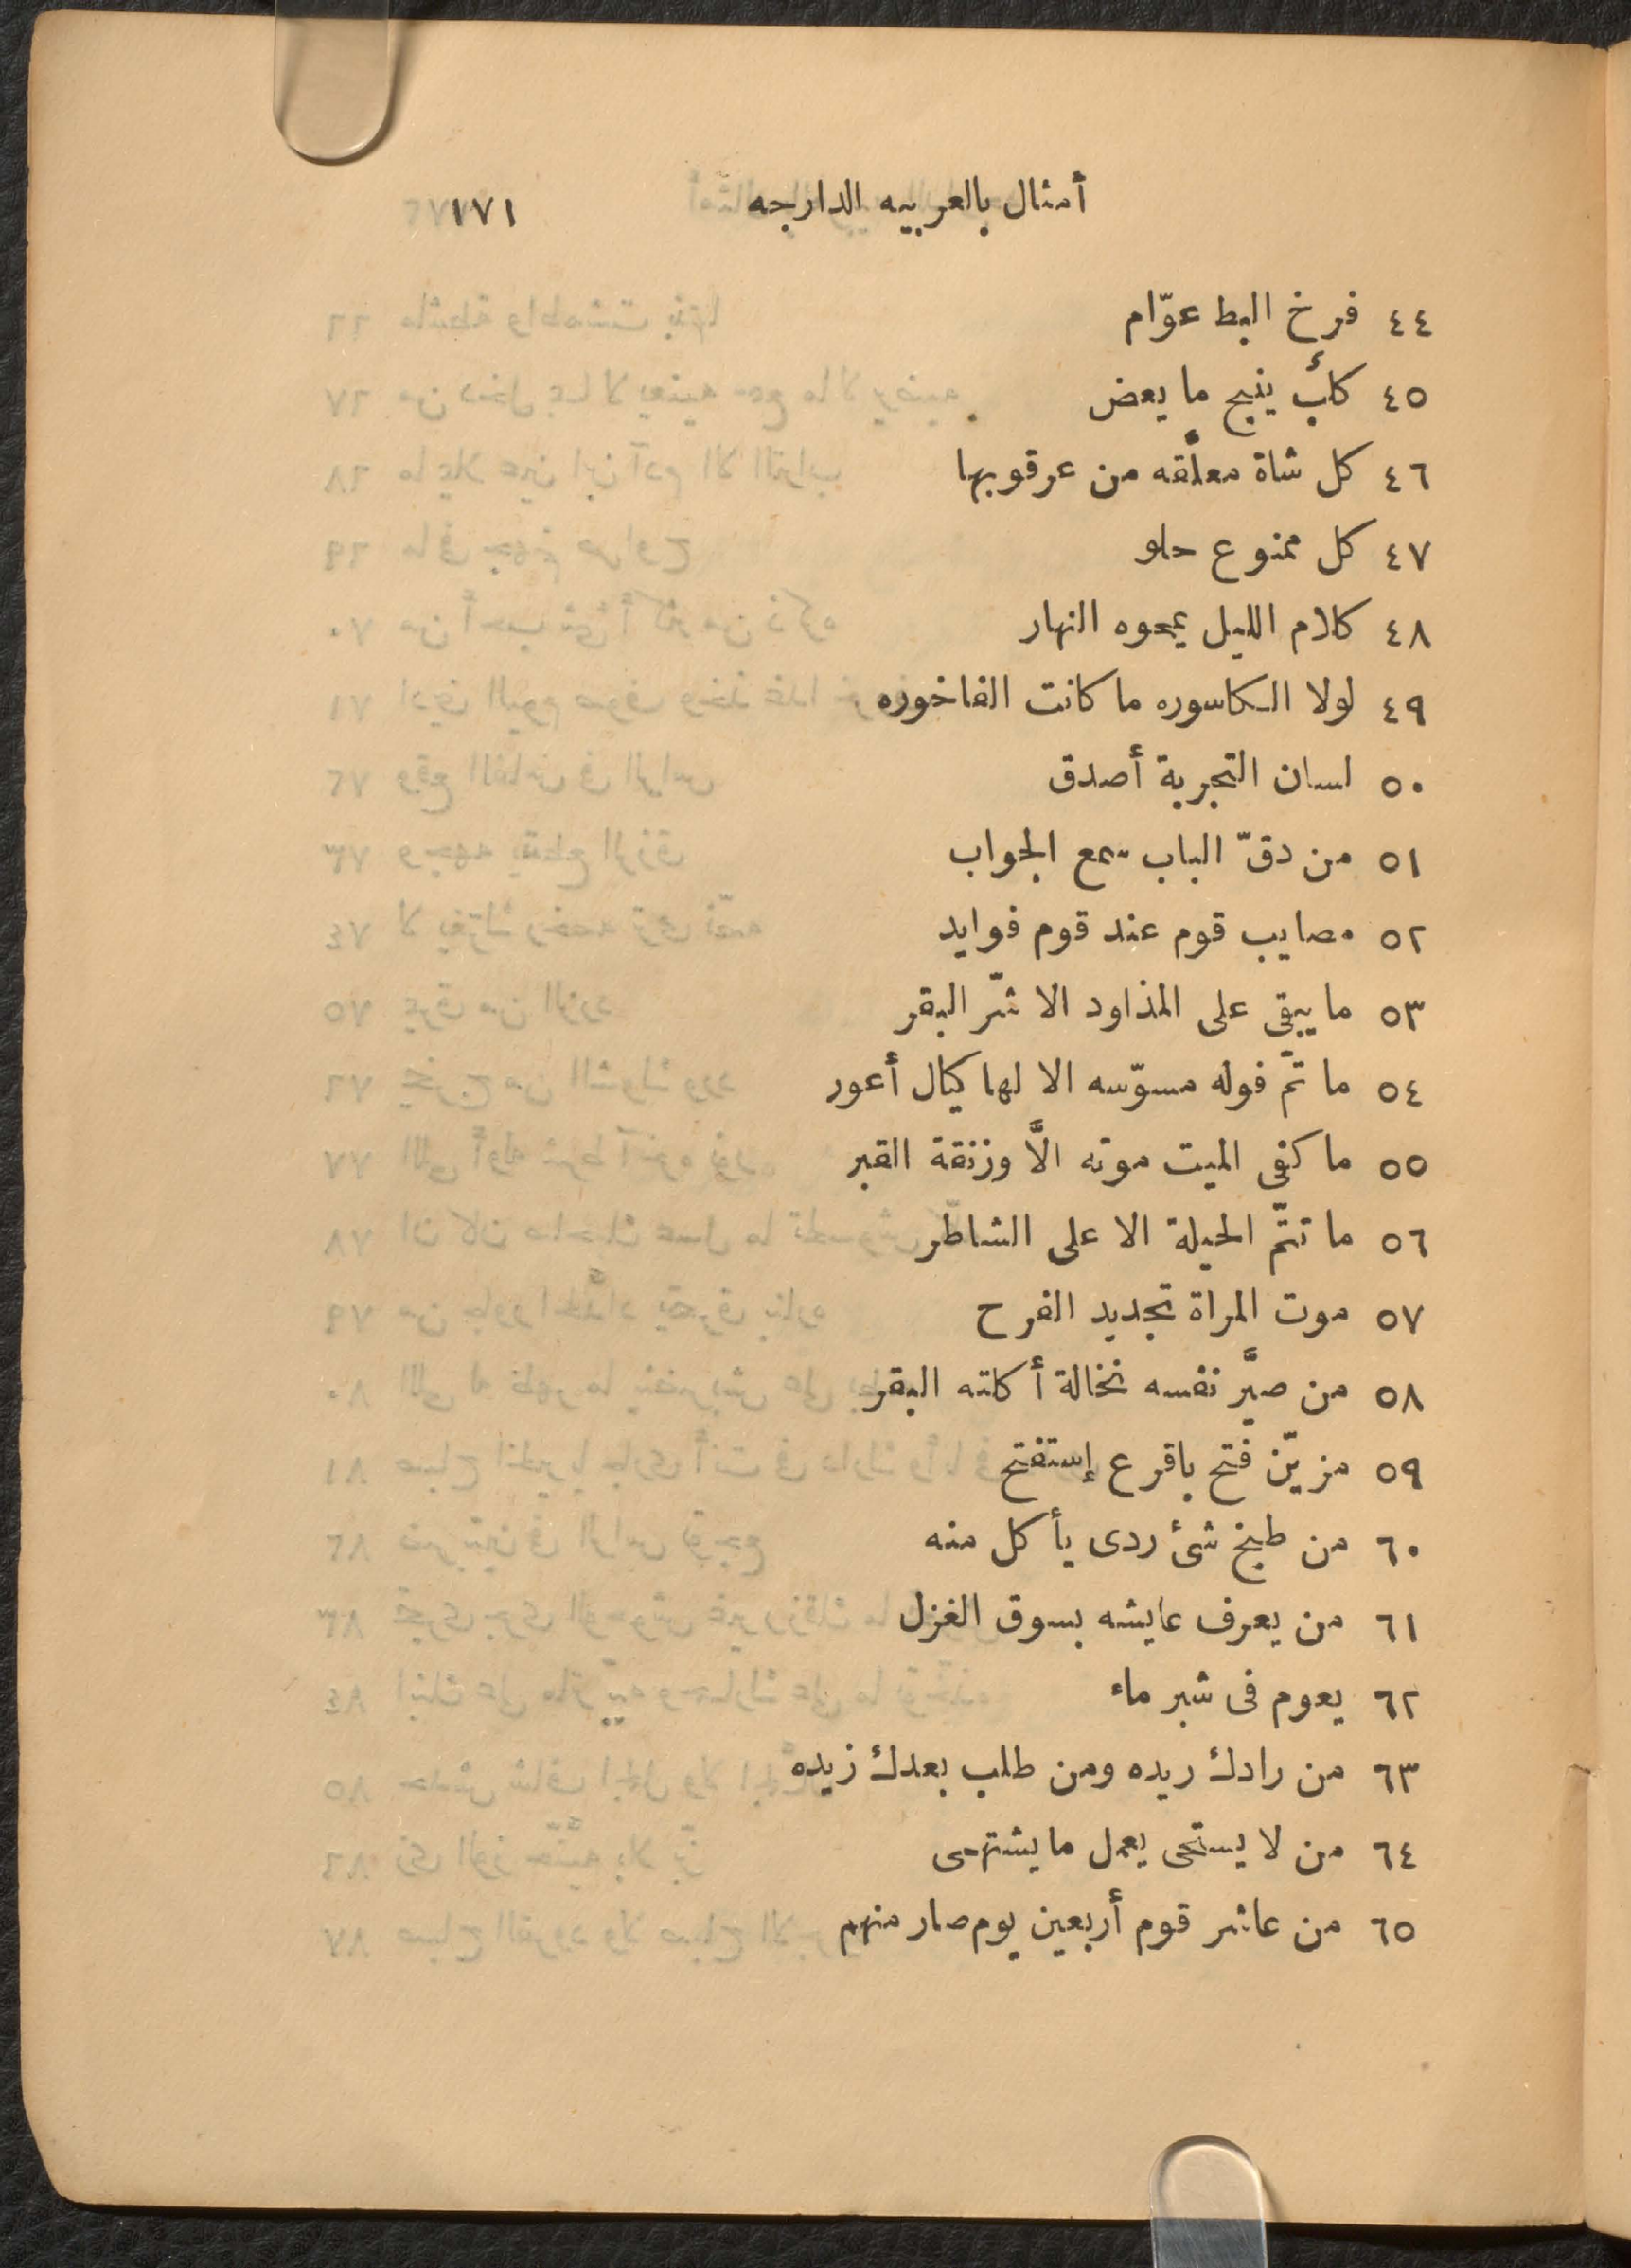 أمثال بالعربيه الدارجه ١٧١
٤٤ فرخ البط عوّام
٤٥ كلب ينبح ما يعض
٤٦ كل شاة معلّقه من عرقوبها
٤٧ كل ممنوع حلو
٤٨ كلام الليل يمحوه النهار
٤٩ لولا الكاسوره ما كانت الفاخوره
٥٠ لسان التجربة أصدق
٥١ من دقّ الباب سمع الجواب
٥٢ مصايب قوم عند قوم فوايد
٥٣ ما يبقى على المذاود الا شرّ البقر
٥٤ ما تمّ فوله مسوّسه الا لها كيال أعور
٥٥ ما كفى الميت موته الاَّ وزنقة القبر
٥٦ ما تتمّ الحيلة الا على الشاطر
٥٧ موت المراة تجديد الفرح
٥٨ من صيَّر نفسه نخالة أكلته البقر
٥٩ مزيّن فتح باقرع إستفتح
٦٠ من طبخ شئ ردى يأكل منه
٦١ من يعرف عايشه بسوق الغزل
٦٢ يعوم فى شبر ماء
٦٣ من رادك ريده ومن طلب بعدك زيده
٦٤ من لا يستحى يعمل ما يشتهى
٦٥ من عاشر قوم أربعين يوم صار منهم